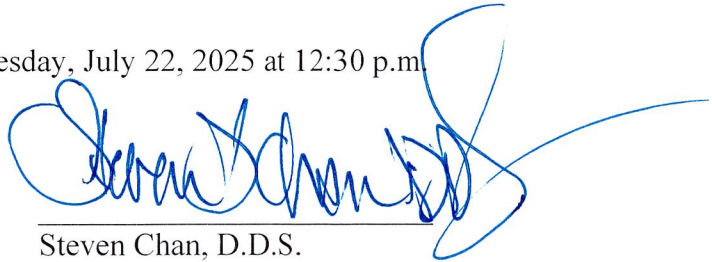 esday, July 22, 2025 at 12:30 p.m.
Steven D Chan DDS
Steven Chan, D.D.S.